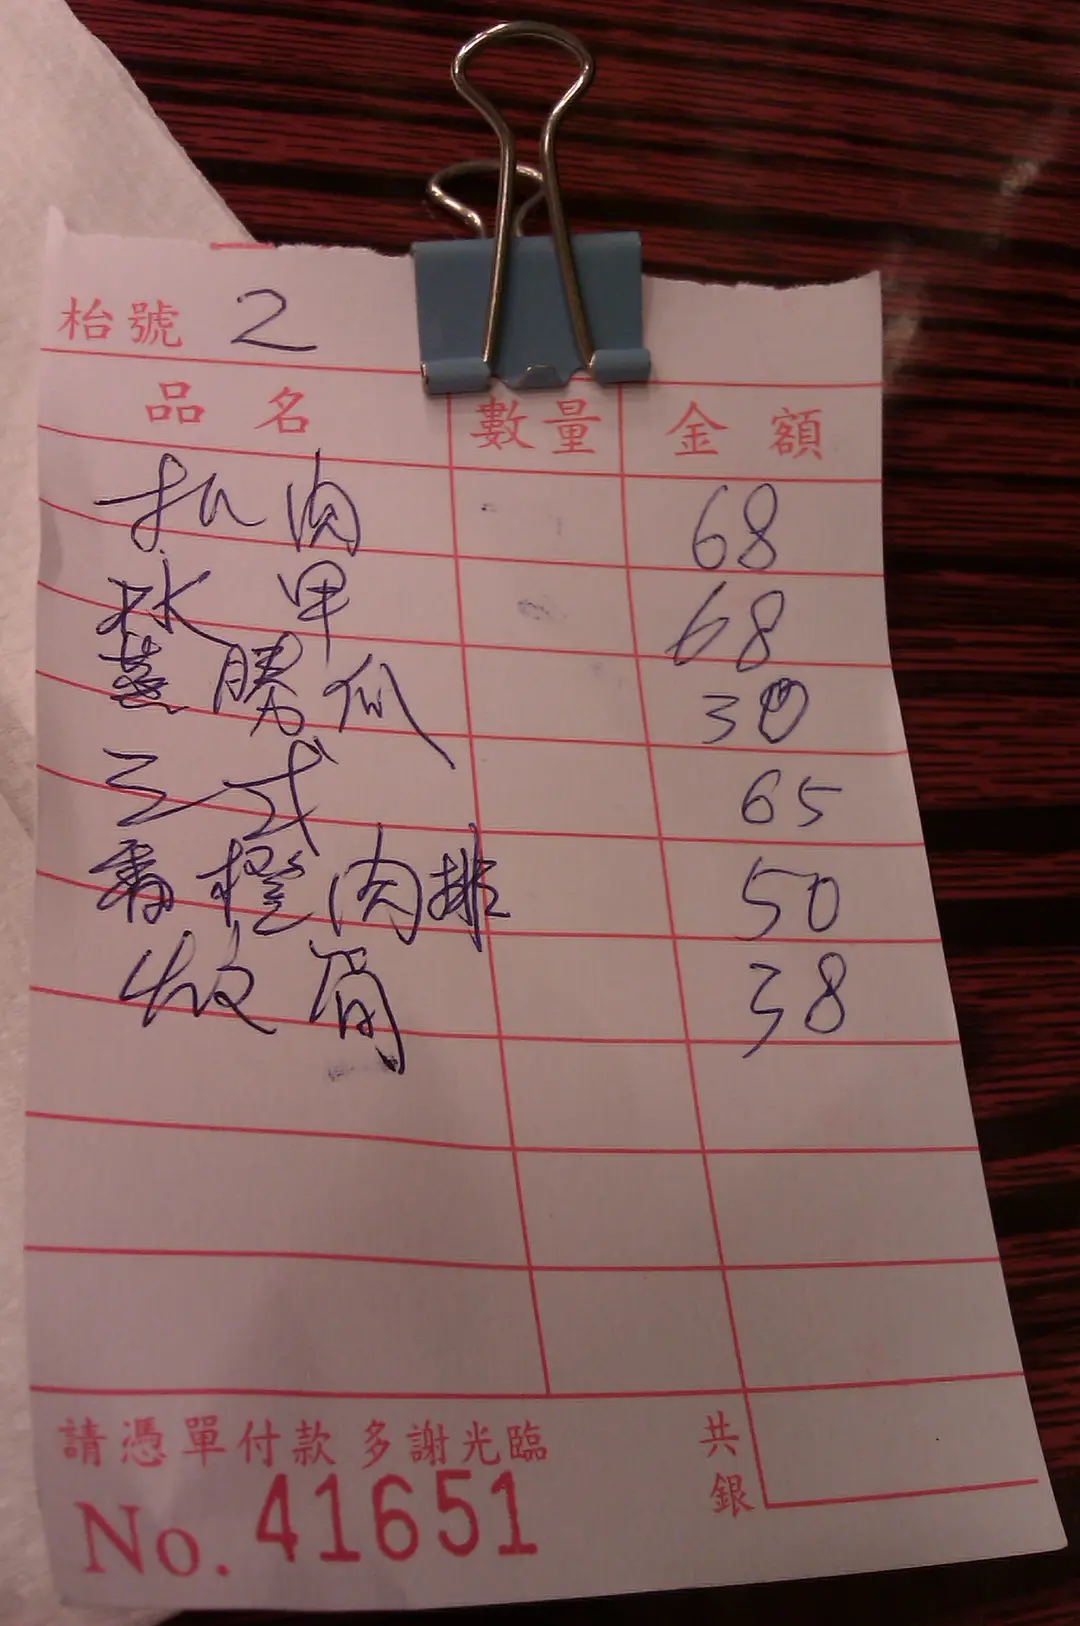 枱號 2
品名 數量 金額
扣肉 68
甲 68
蒸勝瓜 30
三式 65
香橙肉排 50
38
請憑單付款 多謝光臨 共銀
No. 41651